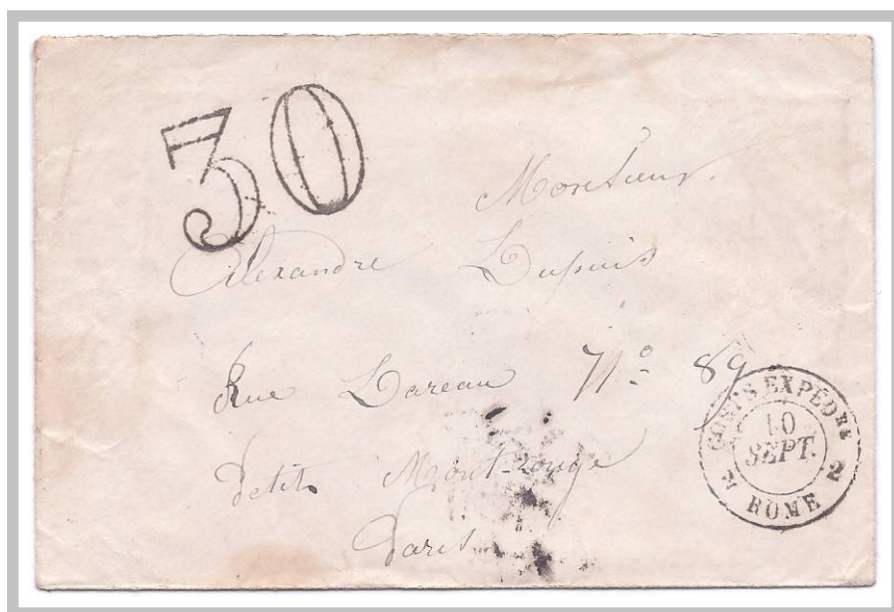 30
Monsieur
Alexandre Dupuis
Rue Dareau Nº 89
Petit Mont-rouge
Paris
CORPS EXPEDRE
10
SEPT.
2 2
ROME